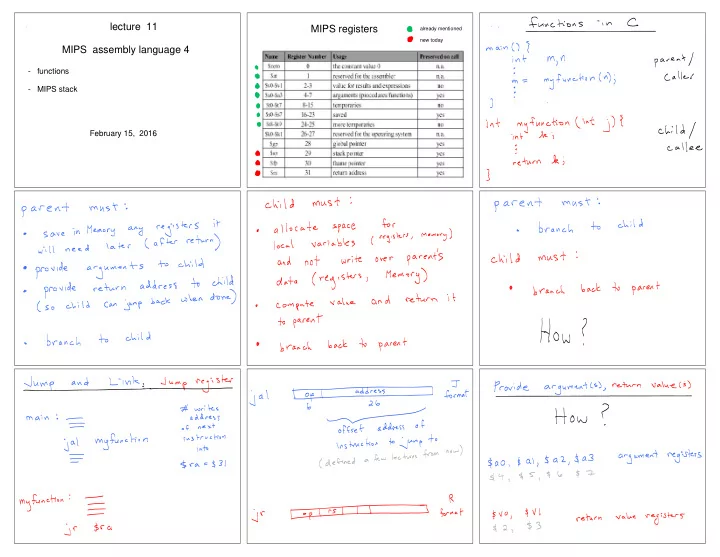 lecture 11
MIPS assembly language 4
- functions
- MIPS stack
February 15, 2016
MIPS registers
already mentioned
new today
Name Register Number Usage Preserved on call
$zero 0 the constant value 0 n.a.
$at 1 reserved for the assembler n.a.
$v0-$v1 2-3 value for results and expressions no
$a0-$a3 4-7 arguments (procedures/functions) yes
$t0-$t7 8-15 temporaries no
$s0-$s7 16-23 saved yes
$t8-$t9 24-25 more temporaries no
$k0-$k1 26-27 reserved for the operating system n.a.
$gp 28 global pointer yes
$sp 29 stack pointer yes
$fp 30 frame pointer yes
$ra 31 return address yes
functions in C
main() {
int m,n
:
m = myfunction(n);
:
}
parent/
caller
int myfunction(int j){
int k;
:
return k;
}
child/
callee
parent must:
• save in Memory any registers it
will need later (after return)
• provide arguments to child
• provide return address to child
(so child can jump back when done)
• branch to child
child must:
• allocate space for
local variables (registers, memory)
and not write over parent's
data (registers, Memory)
• compute value and return it
to parent
• branch back to parent
parent must:
• branch to child
child must:
• branch back to parent
How?
Jump and Link, Jump register
main:
jal myfunction
# writes
address
of next
instruction
into
$ra = $31
myfunction:
jr $ra
jal
op address
6 26
J
format
offset address of
instruction to jump to
(defined a few lectures from now)
jr
op rs
R
format
Provide argument(s), return value(s)
How?
$a0, $a1, $a2, $a3 argument registers
$4, $5, $6 $7
$v0, $v1 return value registers
$2, $3